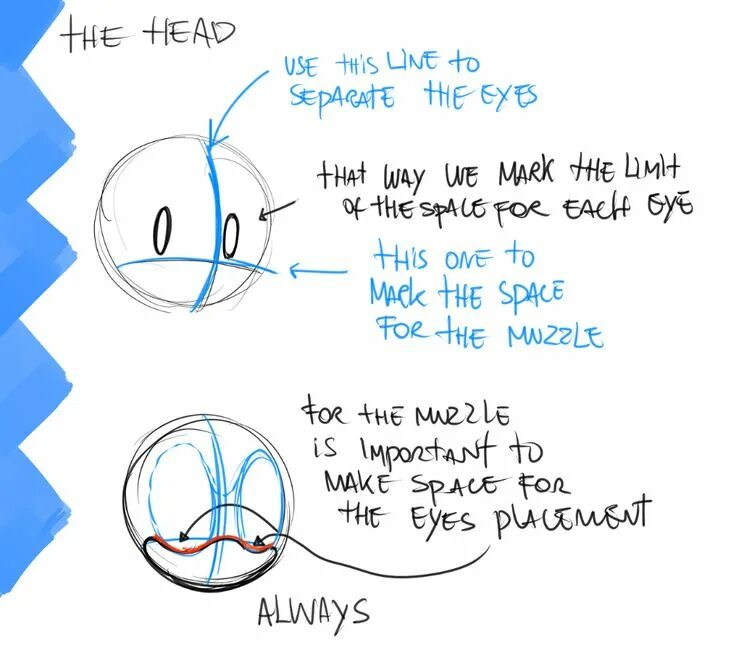 THE HEAD
USE THIS LINE TO
SEPARATE THE EYES
THAT WAY WE MARK THE LIMIT
OF THE SPACE FOR EACH EYE
THIS ONE TO
MARK THE SPACE
FOR THE MUZZLE
FOR THE MUZZLE
IS IMPORTANT TO
MAKE SPACE FOR
THE EYES PLACEMENT
ALWAYS